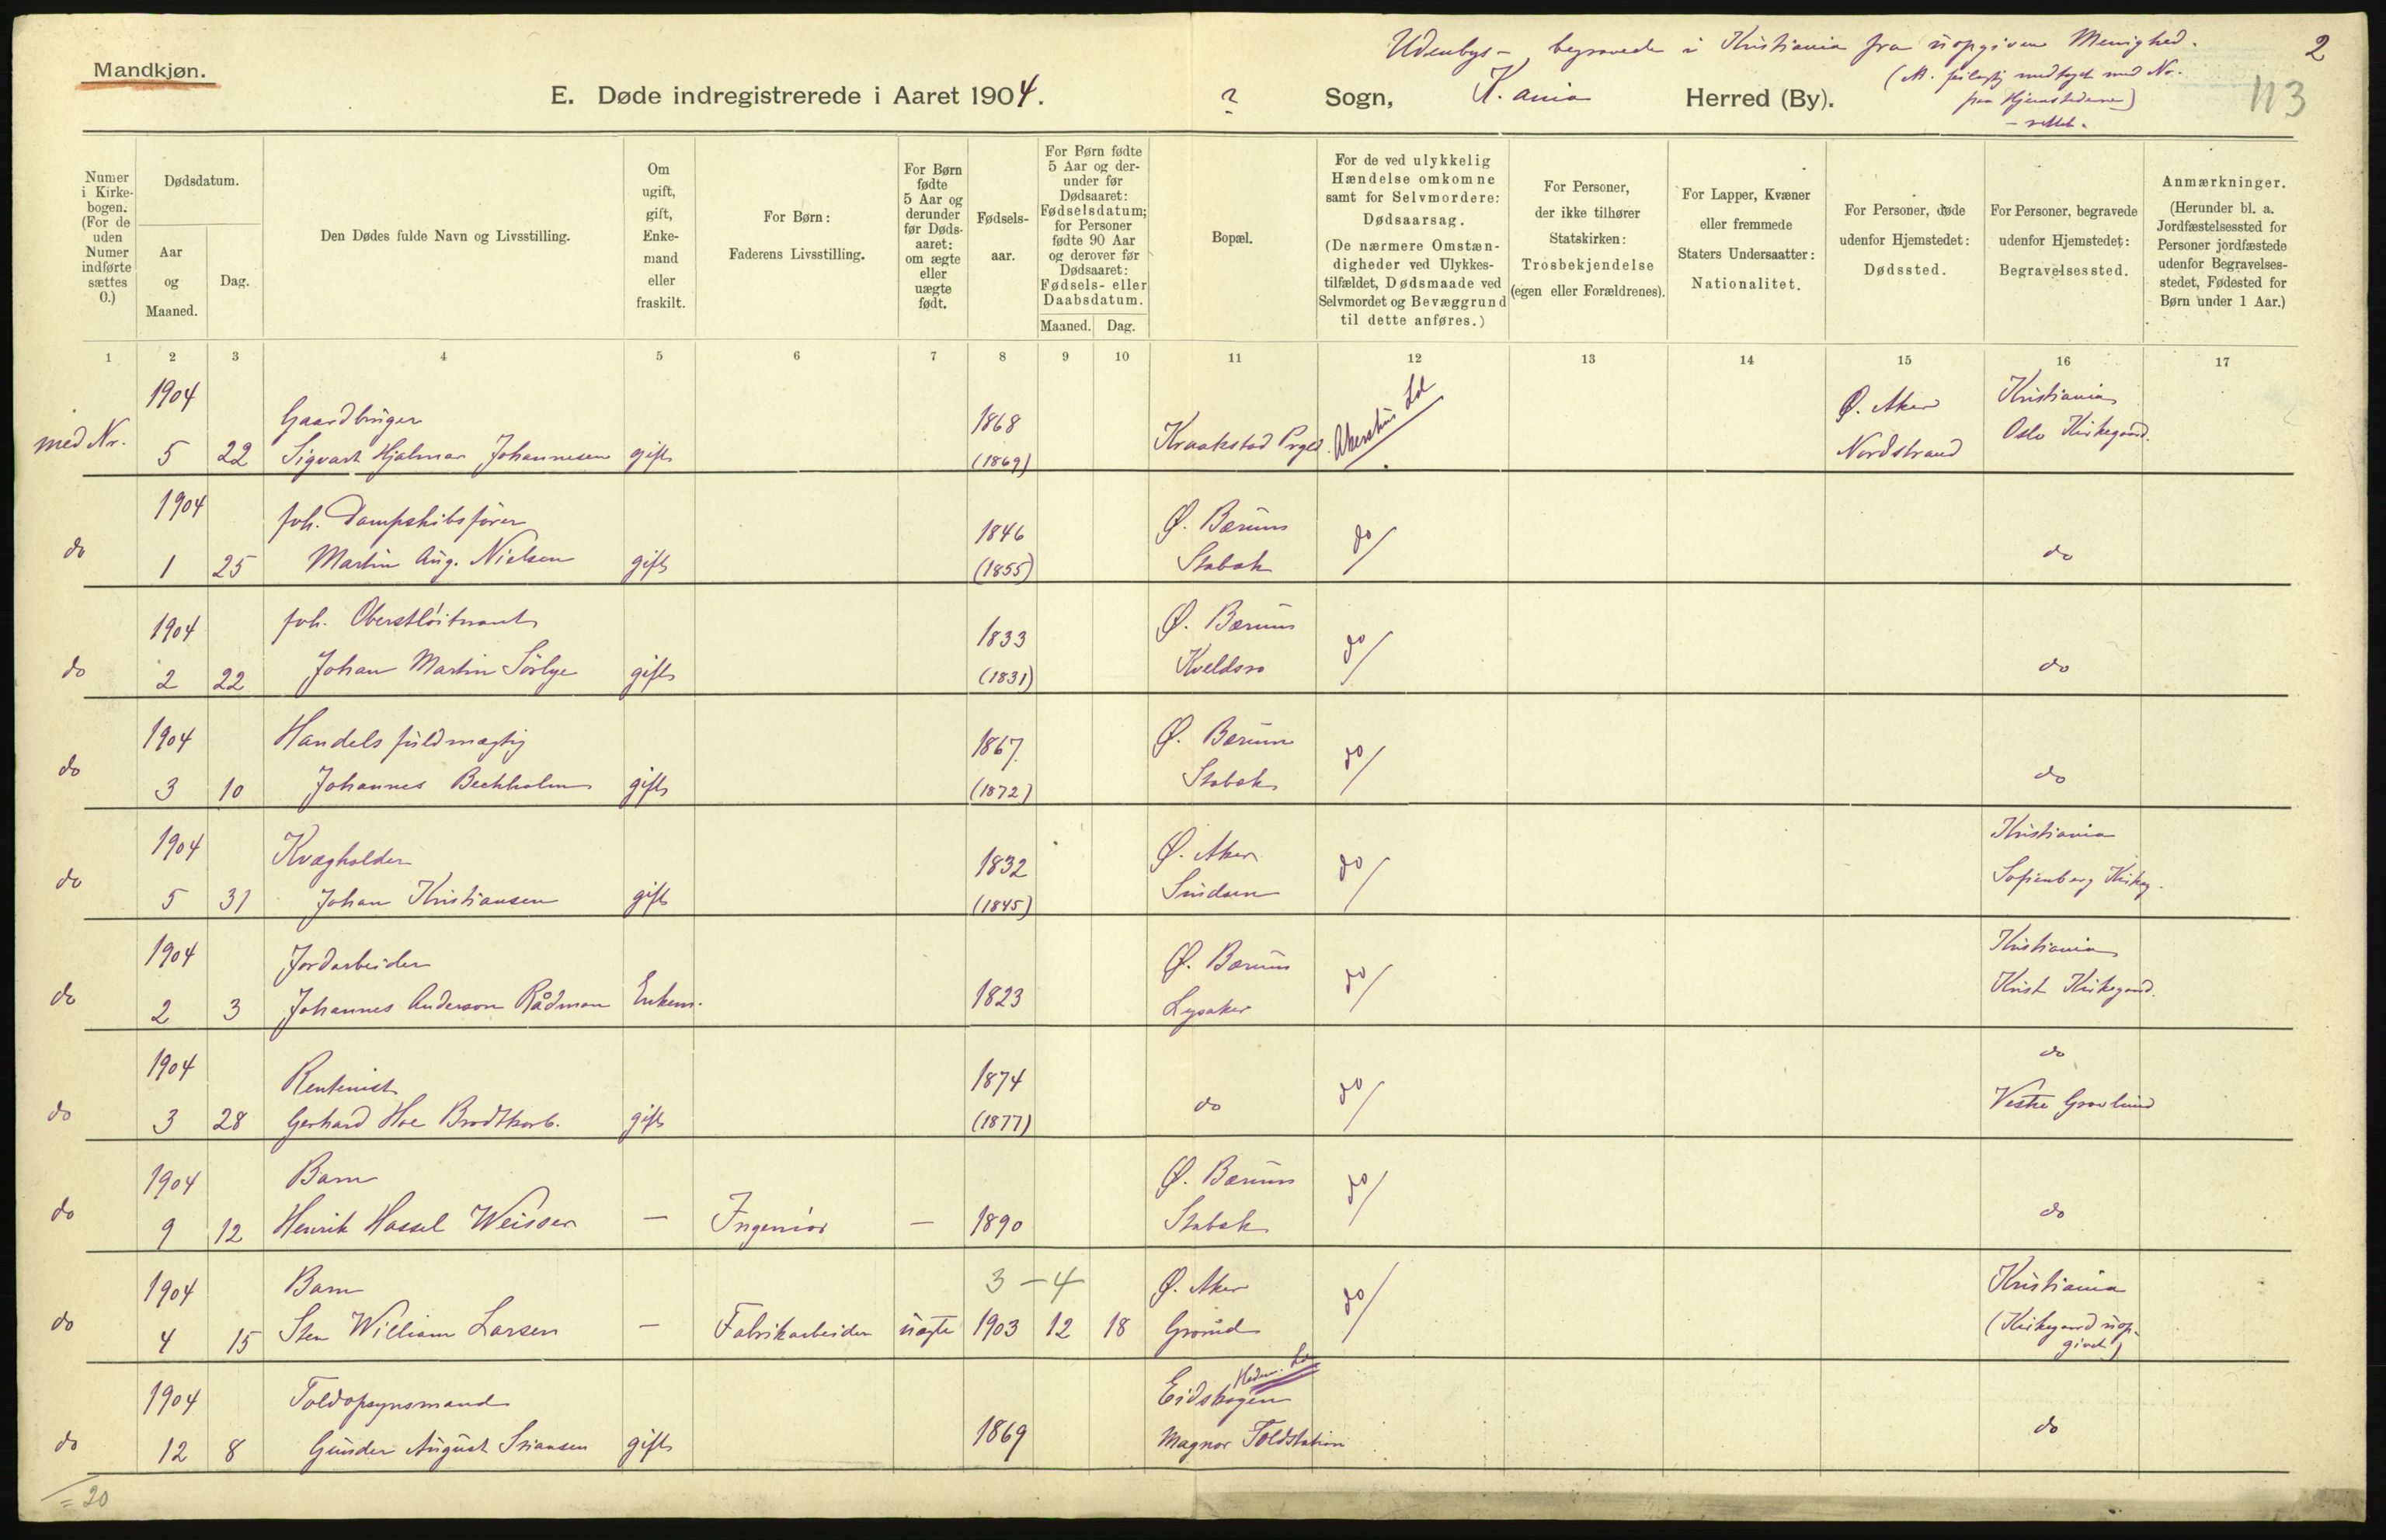 Udenbys - begravede i Kristiania fra uopgiven Menighed.
2
Mandkjøn.
E. Døde indregistrerede i Aaret 1904.
? Sogn, K.ania Herred (By).
113
Numer i Kirkebogen. (For de uden Numer indførte sættes 0.)
Dødsdatum.
Aar og Maaned.
Dag.
Den Dødes fulde Navn og Livsstilling.
Om ugift, gift, Enkemand eller fraskilt.
For Børn: Faderens Livsstilling.
For Børn fødte 5 Aar og derunder før Dødsaaret: om ægte eller uægte født.
Fødselsaar.
For Børn fødte 5 Aar og derunder før Dødsaaret: Fødselsdatum; for Personer fødte 90 Aar og derover før Dødsaaret: Fødsels- eller Daabsdatum.
Maaned. Dag.
Bopæl.
For de ved ulykkelig Hændelse omkomne samt for Selvmordere: Dødsaarsag. (De nærmere Omstændigheder ved Ulykkestilfældet, Dødsmaade ved Selvmordet og Bevæggrund til dette anføres.)
For Personer, der ikke tilhører Statskirken: Trosbekjendelse (egen eller Forældrenes).
For Lapper, Kvæner eller fremmede Staters Undersaatter: Nationalitet.
For Personer, døde udenfor Hjemstedet: Dødssted.
For Personer, begravede udenfor Hjemstedet: Begravelsessted.
Anmærkninger. (Herunder bl. a. Jordfæstelsessted for Personer jordfæstede udenfor Begravelsesstedet, Fødested for Børn under 1 Aar.)
1 2 3 4 5 6 7 8 9 10 11 12 13 14 15 16 17
1904 Gaardbruger 1868 Ø. Aker Kristiania
med Nr. 5 22 Sigvart Hjalmar Johannesen gift (1869) Kraakstad Prgd. Akershus Nordstrand Oslo Kirkegaard.
1904 foh. Dampskibsfører 1846 Ø. Bærum
do 1 25 Martin Aug. Nielsen gift (1855) Stabæk do do
1904 foh. Oberstløitnant 1833 Ø. Bærum
do 2 22 Johan Martin Sørlye gift (1831) Kveldsro do do
1904 Handelsfuldmægtig 1867 Ø. Bærum
do 3 10 Johannes Beckholm gift (1872) Stabæk do do
1904 Kvægholder 1832 Ø. Aker Kristiania
do 5 31 Johan Kristiansen gift (1845) do Sofienberg Kirkeg.
1904 Jordarbeider Ø. Bærum Kristiania
do 2 3 Johannes Anderson Rådman Enkem. 1823 Lysaker do Krist Kirkegaard.
1904 Rentenist 1874 do
do 3 28 Gerhard Hoe Brodtkorb. gift (1877) do do Vestre Gravlund
1904 Barn Ø. Bærum
do 9 12 Henrik Hassel Weisser — Ingeniør — 1890 Stabæk do do
1904 Barn 3 - 4 Ø. Aker Kristiania
do 4 15 Sten William Larsen — Fabrikarbeider uægte 1903 12 18 Grorud do (Kirkegaard uopgivet)
1904 Toldopsynsmand Eidskogen
do 12 8 Gunder August gift 1869 Magnor Toldstation do
= 20